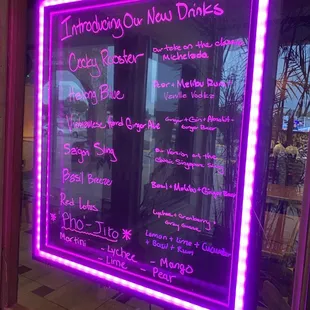 Introducing Our New Drinks
Cocky Rooster
Our take on the classic
Michelada
Halong Blue
Pear + Malibu Rum
Vanilla Vodka
Vietnamese Hard Ginger Ale
Ginger + Gin +
Ginger Beer
Saigon Sling
Our Version of the
Classic Singapore Sling
Basil Breeze
Basil + Malibu + Ginger Beer
Red Lotus
Lychee + Cranberry
Grey Goose
*Pho-Jito*
Lemon + Lime + Cucumber
+ Basil + Rum
Martini
- Lychee - Mango
- Lime - Pear